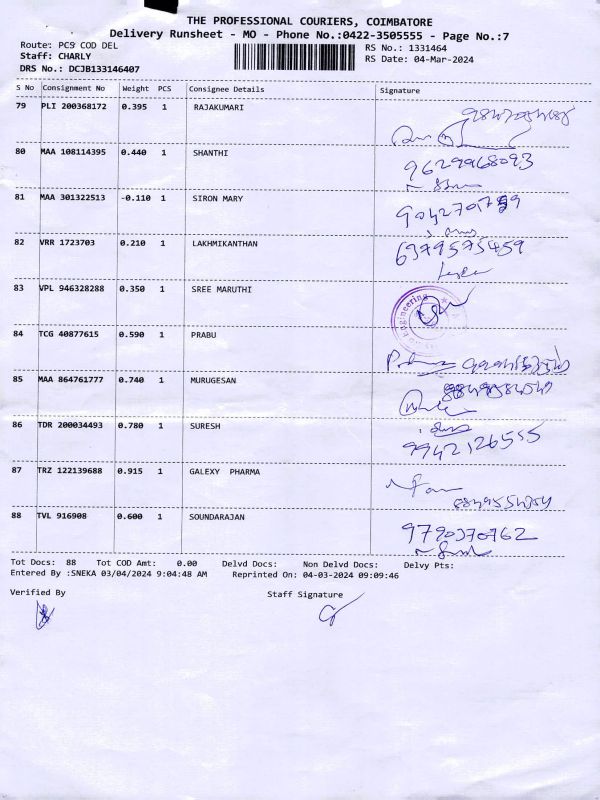 THE PROFESSIONAL COURIERS, COIMBATORE
Delivery Runsheet - MO - Phone No.:0422-3505555 - Page No.:7
Route: PCS COD DEL
RS No.: 1331464
Staff: CHARLY
RS Date: 04-Mar-2024
DRS No.: DCJB133146407
S No Consignment No Weight PCS Consignee Details Signature
79 PLI 200368172 0.395 1 RAJAKUMARI
80 MAA 108114395 0.440 1 SHANTHI
9629968093
81 MAA 301322513 -0.110 1 SIRON MARY
82 VRR 1723703 0.210 1 LAKHMIKANTHAN
6379575459
83 VPL 946328288 0.350 1 SREE MARUTHI
Engineering
84 TCG 40877615 0.590 1 PRABU
85 MAA 864761777 0.740 1 MURUGESAN
86 TDR 200034493 0.780 1 SURESH
9942126555
87 TRZ 122139688 0.915 1 GALEXY PHARMA
88 TVL 916908 0.600 1 SOUNDARAJAN
9790370762
Tot Docs: 88 Tot COD Amt: 0.00 Delvd Docs: Non Delvd Docs: Delvy Pts:
Entered By :SNEKA 03/04/2024 9:04:48 AM Reprinted On: 04-03-2024 09:09:46
Verified By Staff Signature